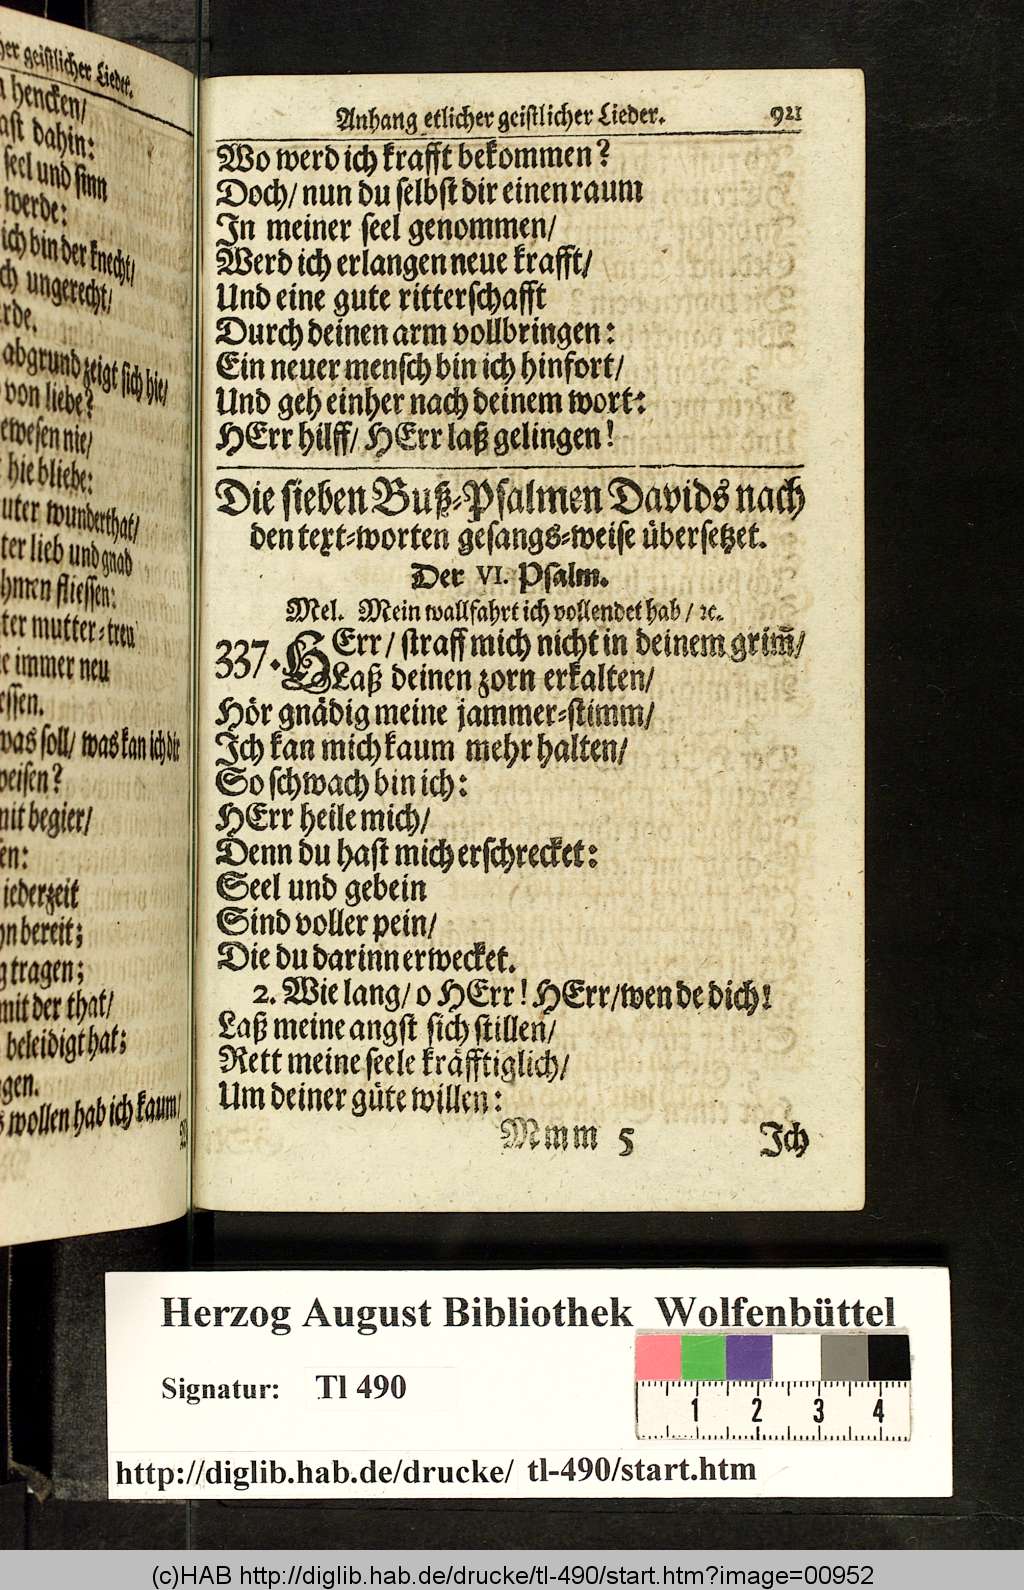 her geistlicher Lieder.
hencken/
ast dahin:
seel und sinn
werde:
ich bin der knecht/
ch ungerecht/
rde.
abgrund zeigt sich hie/
von liebe?
ewesen nie/
hie bliebe:
uter wunderthat/
ter lieb und gnad
fliessen:
ter mutter-treu
e immer neu
essen.
was soll/ was kan ich dir
weisen?
mit begier/
en:
iederzeit
hn bereit;
g tragen;
mit der that/
beleidigt hat;
gen.
wollen hab ich kaum/
Anhang etlicher geistlicher Lieder. 921
Wo werd ich krafft bekommen?
Doch/ nun du selbst dir einen raum
In meiner seel genommen/
Werd ich erlangen neue krafft/
Und eine gute ritterschafft
Durch deinen arm vollbringen:
Ein neuer mensch bin ich hinfort/
Und geh einher nach deinem wort:
HErr hilff/ HErr laß gelingen!
Die sieben Buß-Psalmen Davids nach
den text-worten gesangs-weise übersetzet.
Der VI. Psalm.
Mel. Mein wallfahrt ich vollendet hab/ ꝛc.
337. HErr/ straff mich nicht in deinem grim̃/
Laß deinen zorn erkalten/
Hör gnädig meine jammer-stimm/
Ich kan mich kaum mehr halten/
So schwach bin ich:
HErr heile mich/
Denn du hast mich erschrecket:
Seel und gebein
Sind voller pein/
Die du darinn erwecket.
2. Wie lang/ o HErr! HErr/ wende dich!
Laß meine angst sich stillen/
Rett meine seele kräfftiglich/
Um deiner güte willen:
Mmm 5 Ich
Herzog August Bibliothek Wolfenbüttel
Signatur: Tl 490
1 2 3 4
http://diglib.hab.de/drucke/ tl-490/start.htm
(c)HAB http://diglib.hab.de/drucke/tl-490/start.htm?image=00952